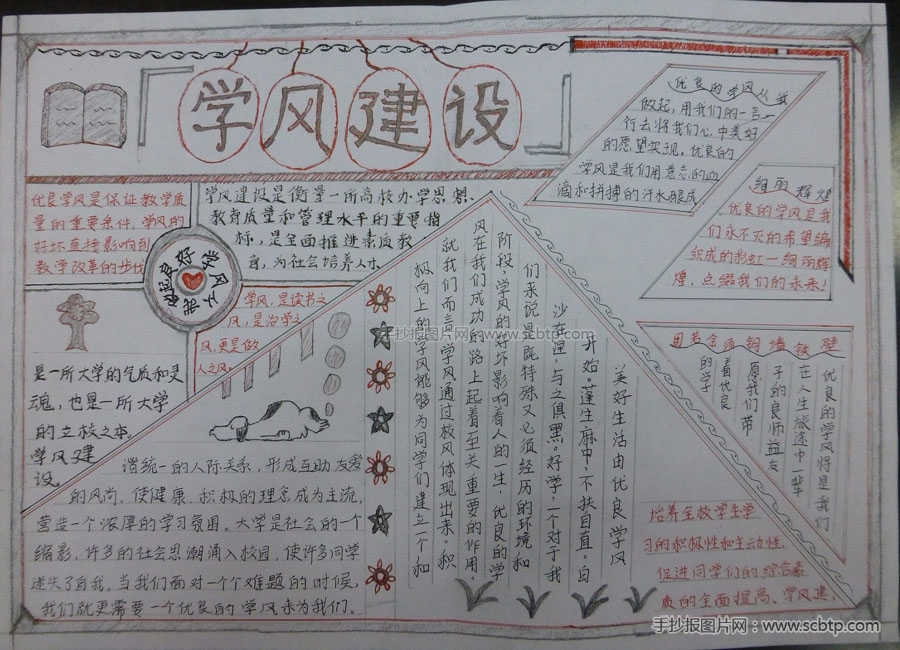 学风建设
优良学风是保证教学质
量的重要条件，学风的
好坏直接影响到
教学改革的步伐
学风建设是衡量一所高校办学思想、
教育质量和管理水平的重要指
标，是全面推进素质教
育，为社会培养人才
良好学风从我做起
学风，是读书之
风，是治学之
风，更是做
人之风。
是一所大学的气质和灵
魂，也是一所大学
的立校之本。
学风建
设，
谐统一的人际关系，形成互助友爱
的风尚，使健康、积极的理念成为主流，
营造一个浓厚的学习氛围。大学是社会的一个
缩影，许多的社会思潮涌入校园，使许多同学
迷失了自我。当我们面对一个个难题的时候，
我们就更需要一个优良的学风来为我们，
美好生活由优良学风
开始。蓬生麻中，不扶自直。白
沙在涅，与之俱黑。好学，一个对于我
们来说是既特殊又必须经历的环境和
阶段，学风的好坏影响着人的一生，优良的学
风在我们成功的路上起着至关重要的作用。
就我们而言，学风通过校风体现出来。积
极向上的学风能够为同学们建立一个和
优良的学风从我
做起，用我们的一言一
行去将我们心中美好
的愿望实现。优良的
学风是我们用意志的血
滴和拼搏的汗水酿成
绚丽辉煌
优良的学风是我
们永不灭的希望编
织成的彩虹—绚丽辉
煌，点缀我们的未来！
固若金汤铜墙铁壁
优良的学风将是我们
在人生旅途中一辈
子的良师益友
愿我们带
着优良
的学
培养全校学生学
习的积极性和主动性，
促进同学们的综合素
质的全面提高。学风建，
手抄报图片网：www.scbtp.com
手抄报图片网：www.scbtp.com